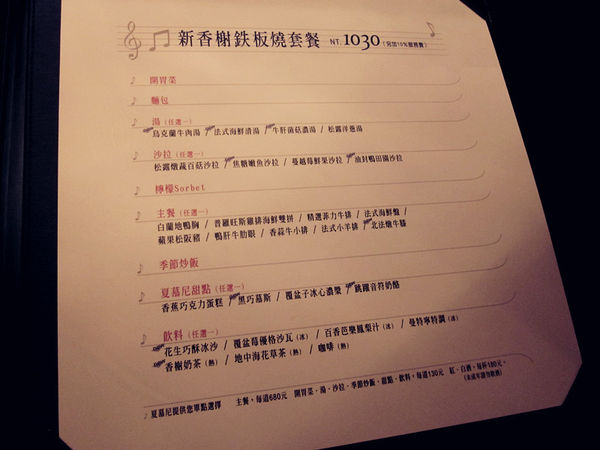 新香榭鉄板燒套餐 NT. 1030 (另加10%服務費)
開胃菜
麵包
湯 (任選一)
烏克蘭牛肉湯 / 法式海鮮清湯 / 牛肝菌菇濃湯 / 松露洋蔥湯
沙拉 (任選一)
松露燉蔬百菇沙拉 / 焦糖嫩魚沙拉 / 蔓越莓鮮果沙拉 / 油封鴨田園沙拉
檸檬Sorbet
主餐 (任選一)
白蘭地鴨胸 / 普羅旺斯雞排海鮮雙拼 / 精選菲力牛排 / 法式海鮮盤 /
蘋果松阪豬 / 鴨肝牛肋眼 / 香蒜牛小排 / 法式小羊排 / 北法燉牛膝
季節炒飯
夏慕尼甜點 (任選一)
香蕉巧克力蛋糕 / 黑巧慕斯 / 覆盆子冰心濃漿 / 跳躍音符奶酪
飲料 (任選一)
花生巧酥冰沙 / 覆盆莓優格沙瓦 (冰) / 百香芭樂鳳梨汁 (冰) / 曼特寧特調 (冰)
香榭奶茶 (熱) / 地中海花草茶 (熱) / 咖啡 (熱)
夏慕尼提供您單點選擇 主餐，每道680元 開胃菜、湯、沙拉、季節炒飯、甜點、飲料，每道130元 紅、白酒，每杯180元。
(未成年請勿飲酒)